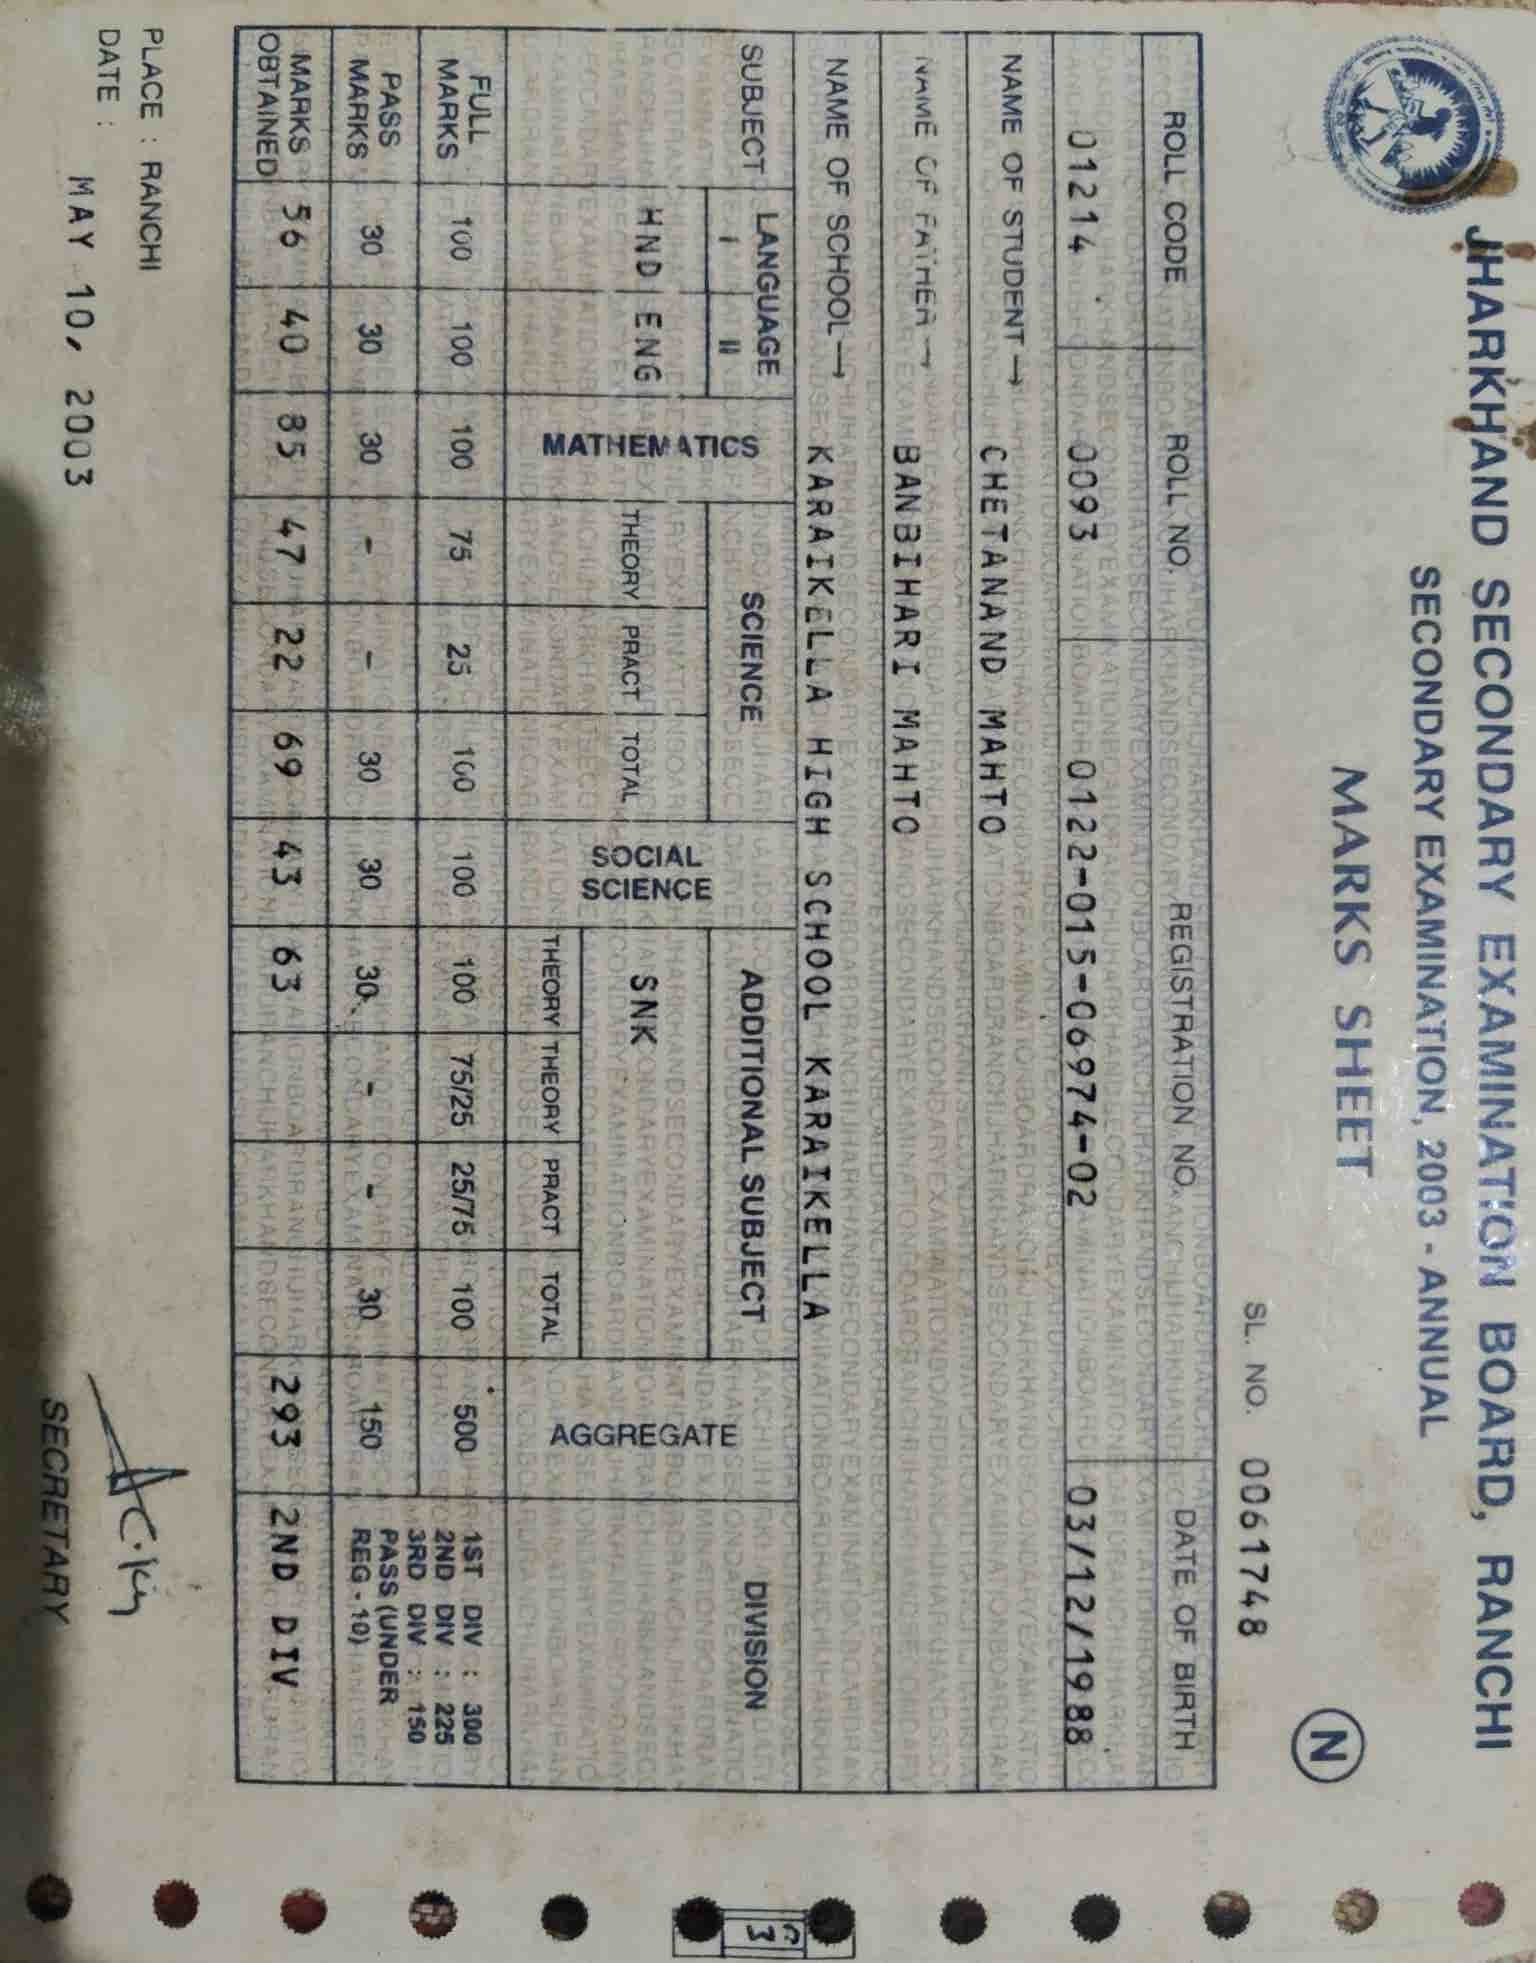 JHARKHAND SECONDARY EXAMINATION BOARD, RANCHI
SECONDARY EXAMINATION, 2003 - ANNUAL
MARKS SHEET
SL. NO. 0061748
N
ROLL CODE ROLL NO. REGISTRATION NO. DATE OF BIRTH
01214 0093 0122-015-06974-02 03/12/1988
NAME OF STUDENT→ CHETANAND MAHTO
NAME OF FATHER→ BANBIHARI MAHTO
NAME OF SCHOOL→ KARAIKELLA HIGH SCHOOL KARAIKELLA
SUBJECT LANGUAGE MATHEMATICS SCIENCE SOCIAL SCIENCE ADDITIONAL SUBJECT AGGREGATE DIVISION
I II
HND ENG THEORY PRACT TOTAL SNK
THEORY THEORY PRACT TOTAL
FULL MARKS 100 100 100 75 25 100 100 100 75/25 25/75 100 500 1ST DIV : 300
2ND DIV : 225
3RD DIV : 150
PASS MARKS 30 30 30 - - 30 30 30 - - 30 150 PASS (UNDER
REG - 10)
MARKS OBTAINED 56 40 85 47 22 69 43 63 293 2ND DIV
PLACE : RANCHI
DATE : MAY 10, 2003
SECRETARY